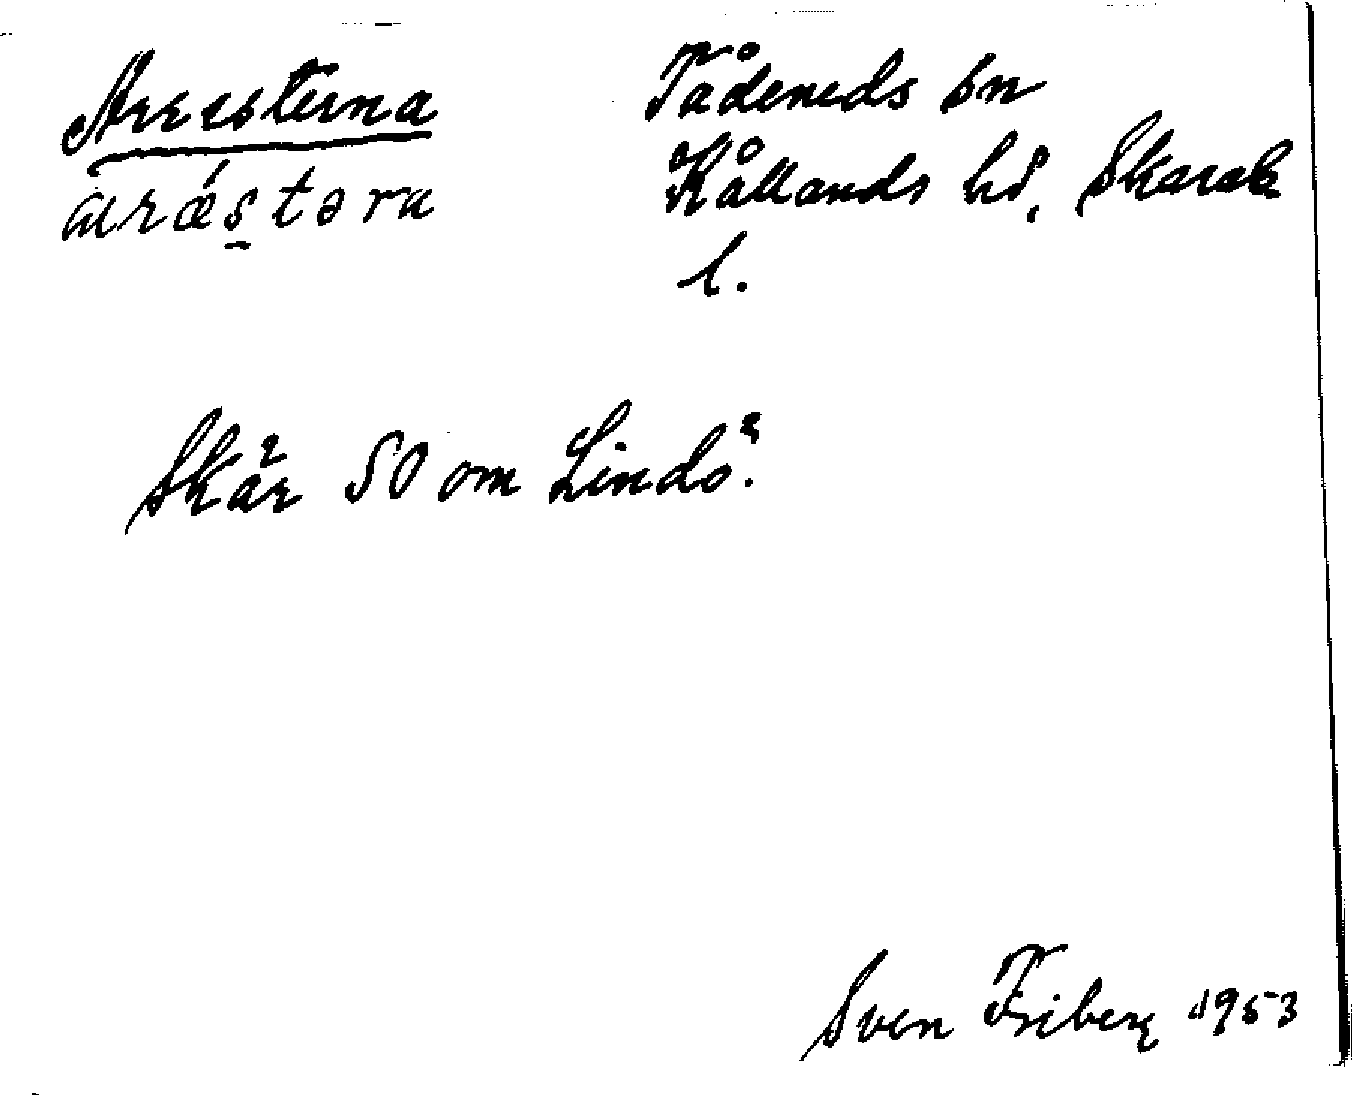 Arresterna
arǽs̠təra
Tådeneds sn
Kållands hd, Skarab
l.
Skär SO om Lindö.
Sven Friberg 1953